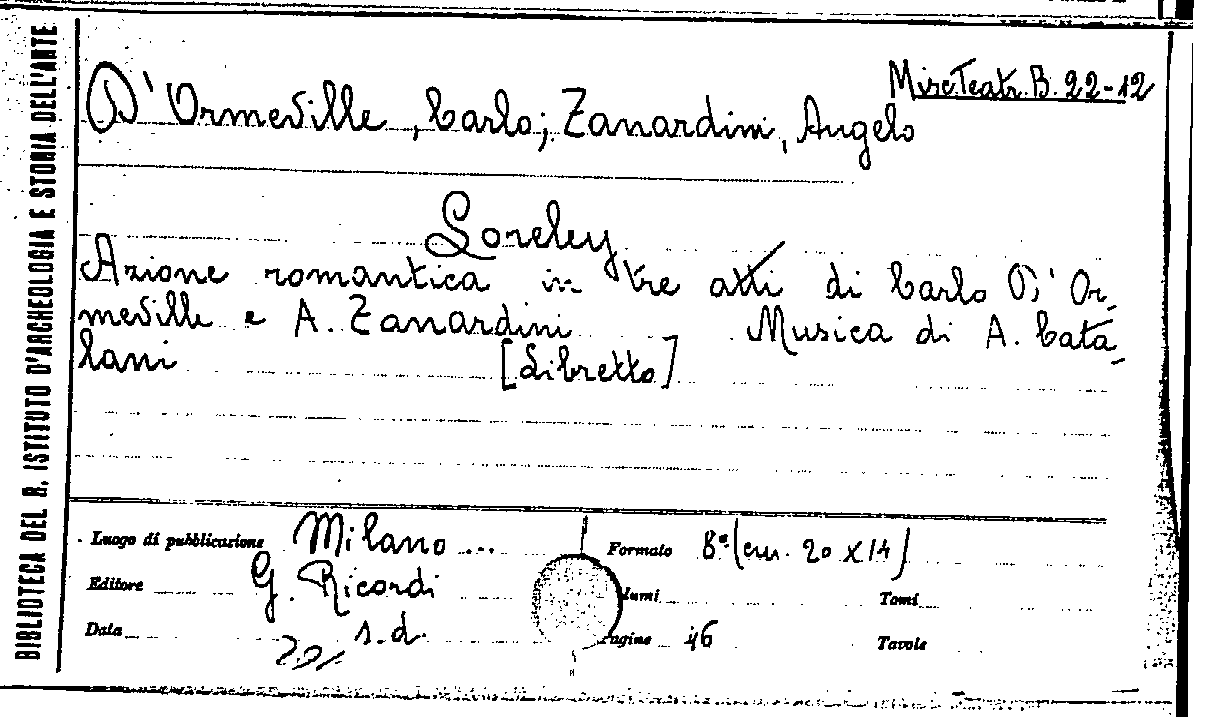 BIBLIOTECA DEL R. ISTITUTO D'ARCHEOLOGIA E STORIA DELL'ARTE
Misc Teatr. B. 22-12
D'Ormeville, Carlo; Zanardini, Angelo
Loreley
Azione romantica in tre atti di Carlo D'Or-
meville e A. Zanardini Musica di A. Cata-
lani [Libretto]
Luogo di pubblicazione Milano ... Formato 8º (cm. 20 x 14)
Editore G. Ricordi Tomi
Data s.d. Pagine 46 Tavole